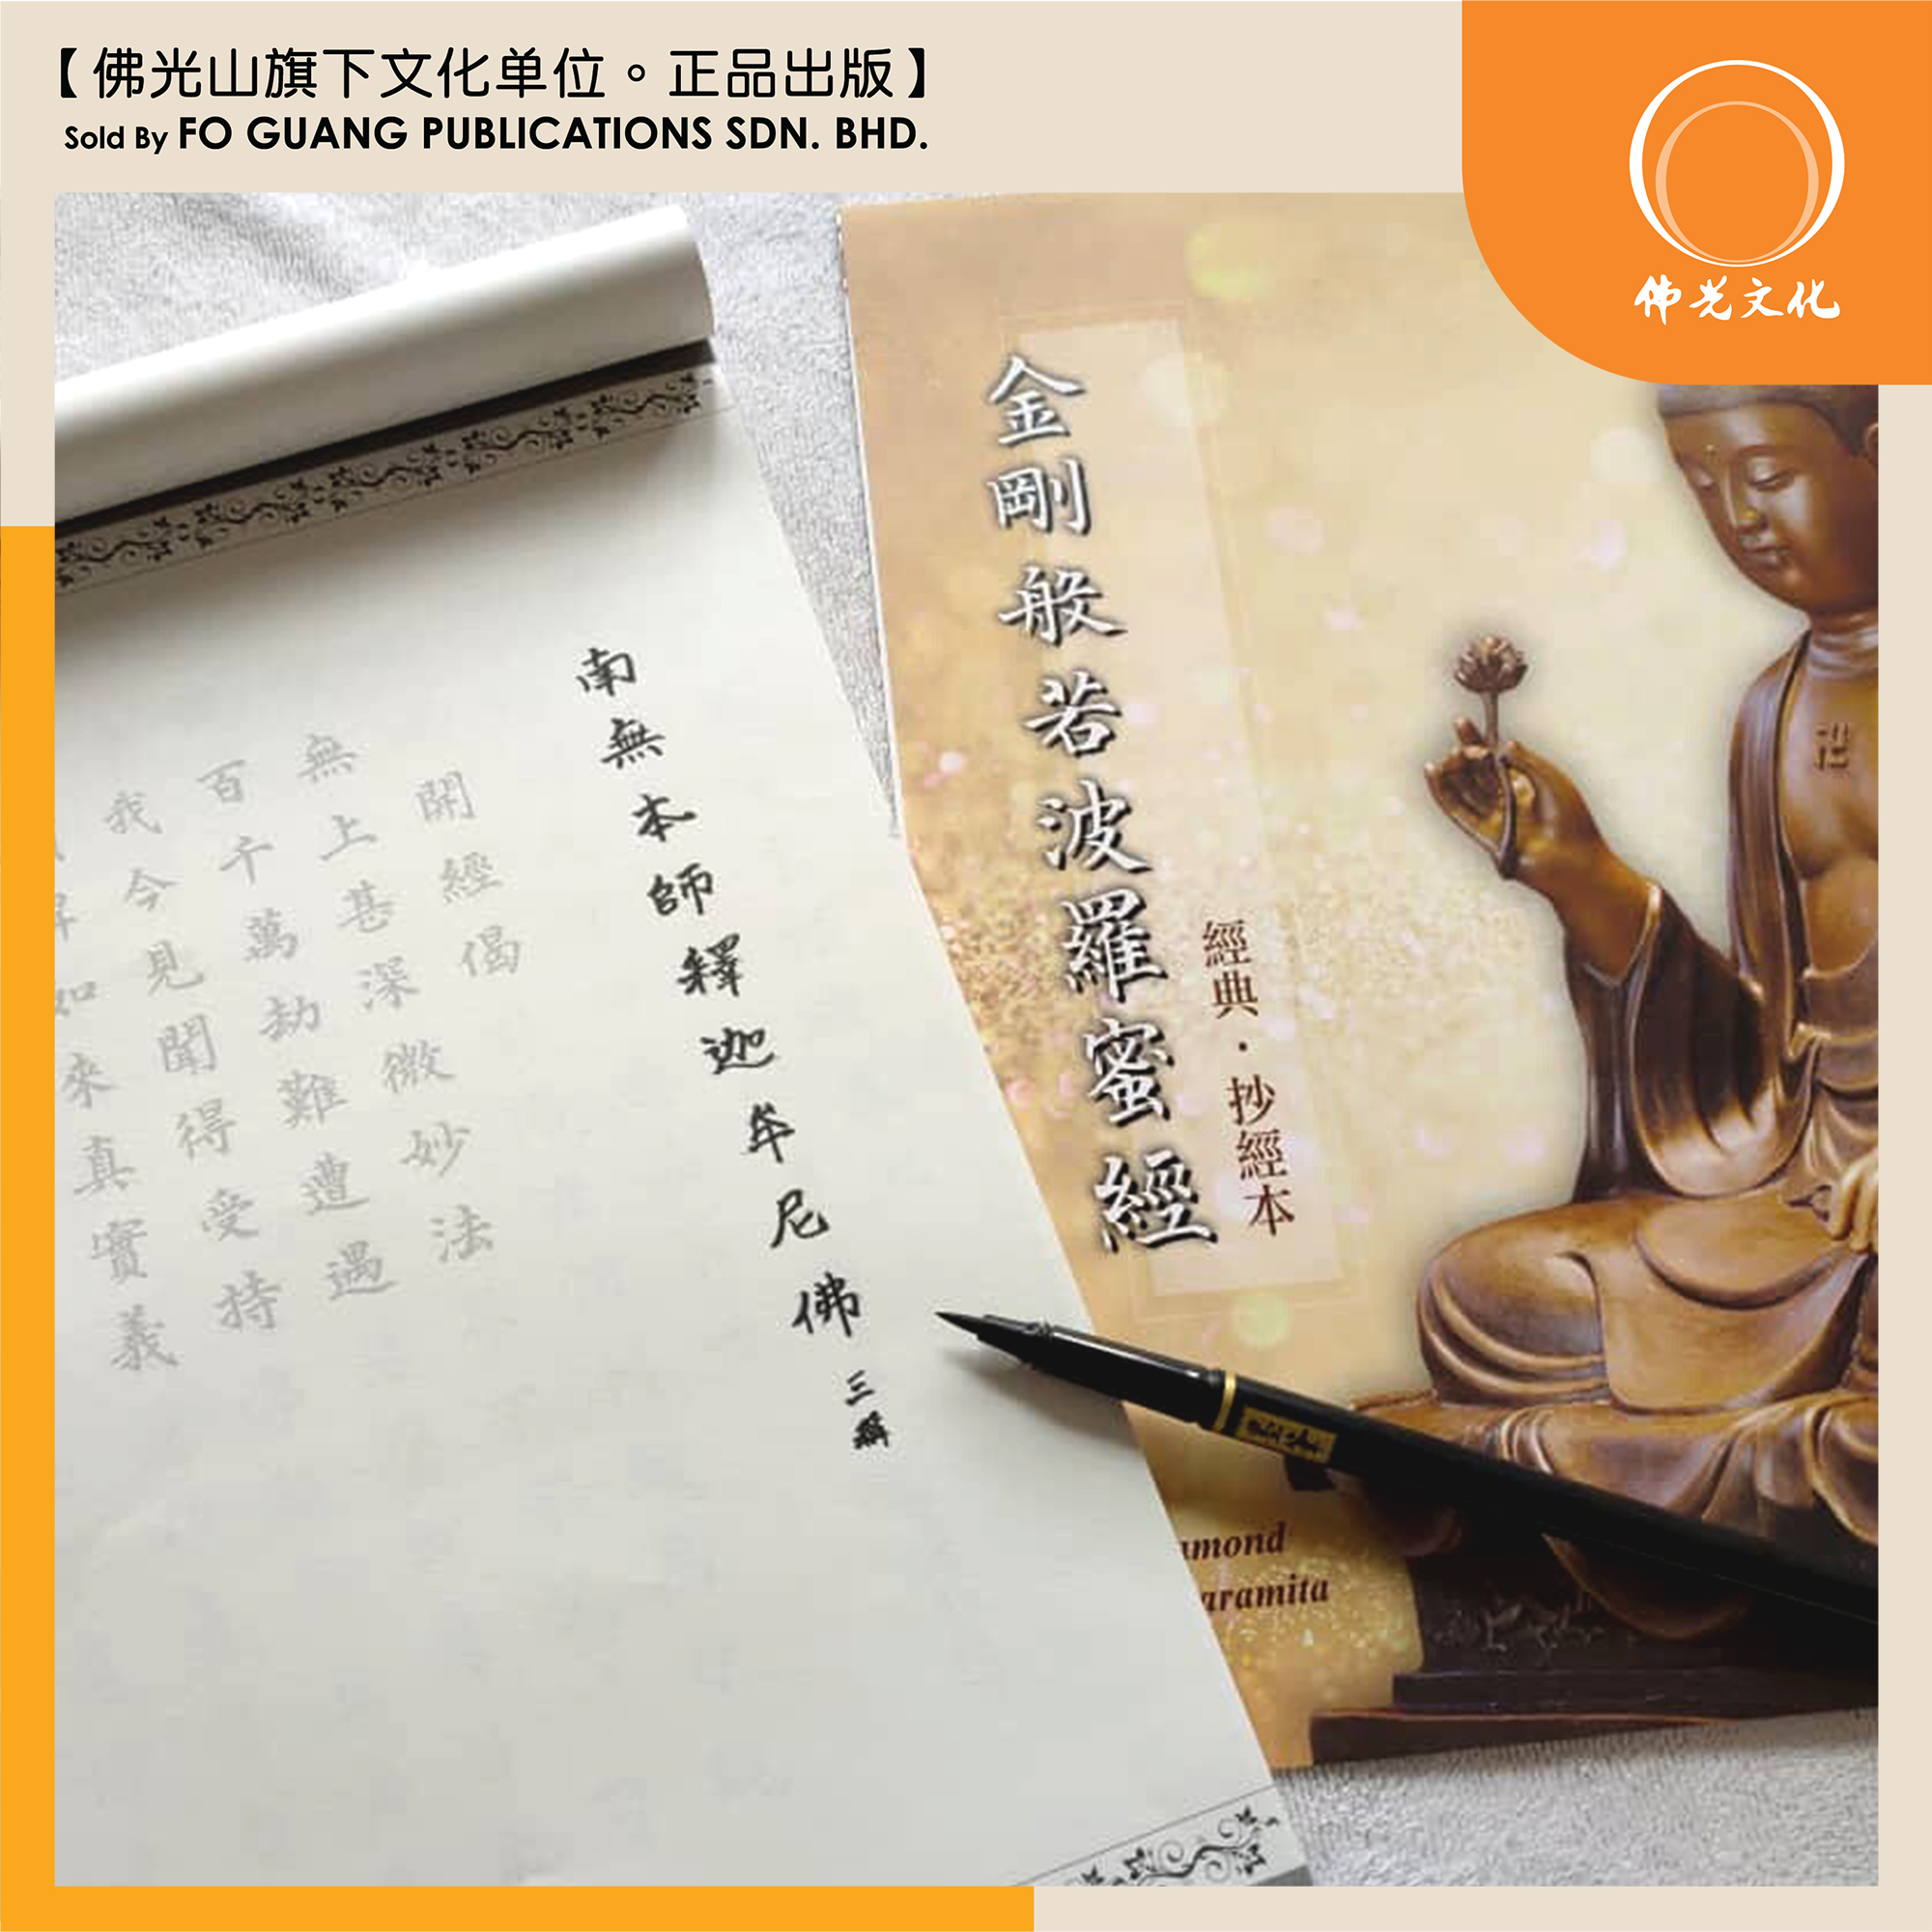 【佛光山旗下文化单位。正品出版】
Sold By FO GUANG PUBLICATIONS SDN. BHD.
佛光文化
金剛般若波羅蜜經
經典·抄經本
amond
aramita
南無本師釋迦牟尼佛 三稱
開經偈
無上甚深微妙法
百千萬劫難遭遇
我今見聞得受持
解如來真實義
卍